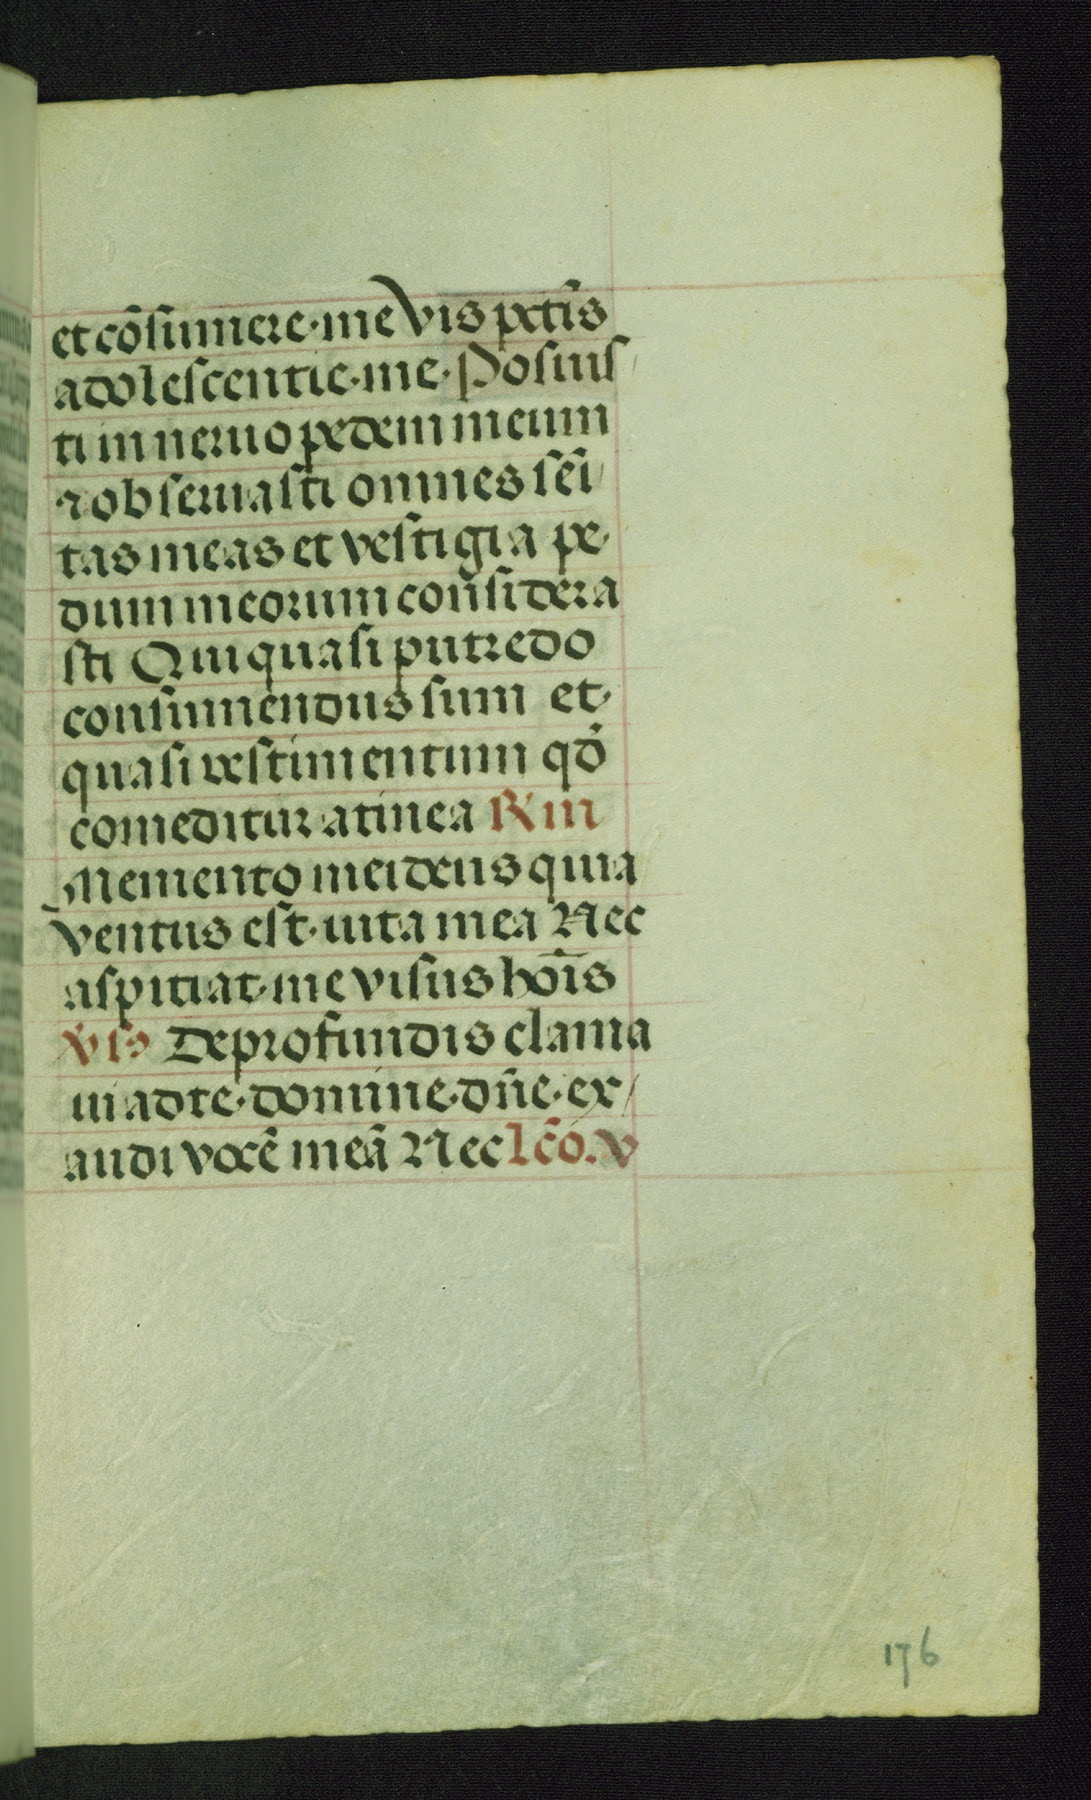 et cõsumere·me vis pctĩs
adolescentie·me· Posuis
ti in neruo pedem meum
⁊ obseruasti omnes sẽi
tas meas et vestigia pe
dum meorum considera
sti Qui quasi putredo
consumendus sum et·
quasi vestimentum qđ
comeditur a tinea R̸ iii
Memento mei deus quia
ventus est·uita mea Nec
aspitiat·me visus hoĩs
v̸is De profundis clama
ui ad te·domine·dñe·ex/
audi vocẽ meã Nec lc̃o.v
176